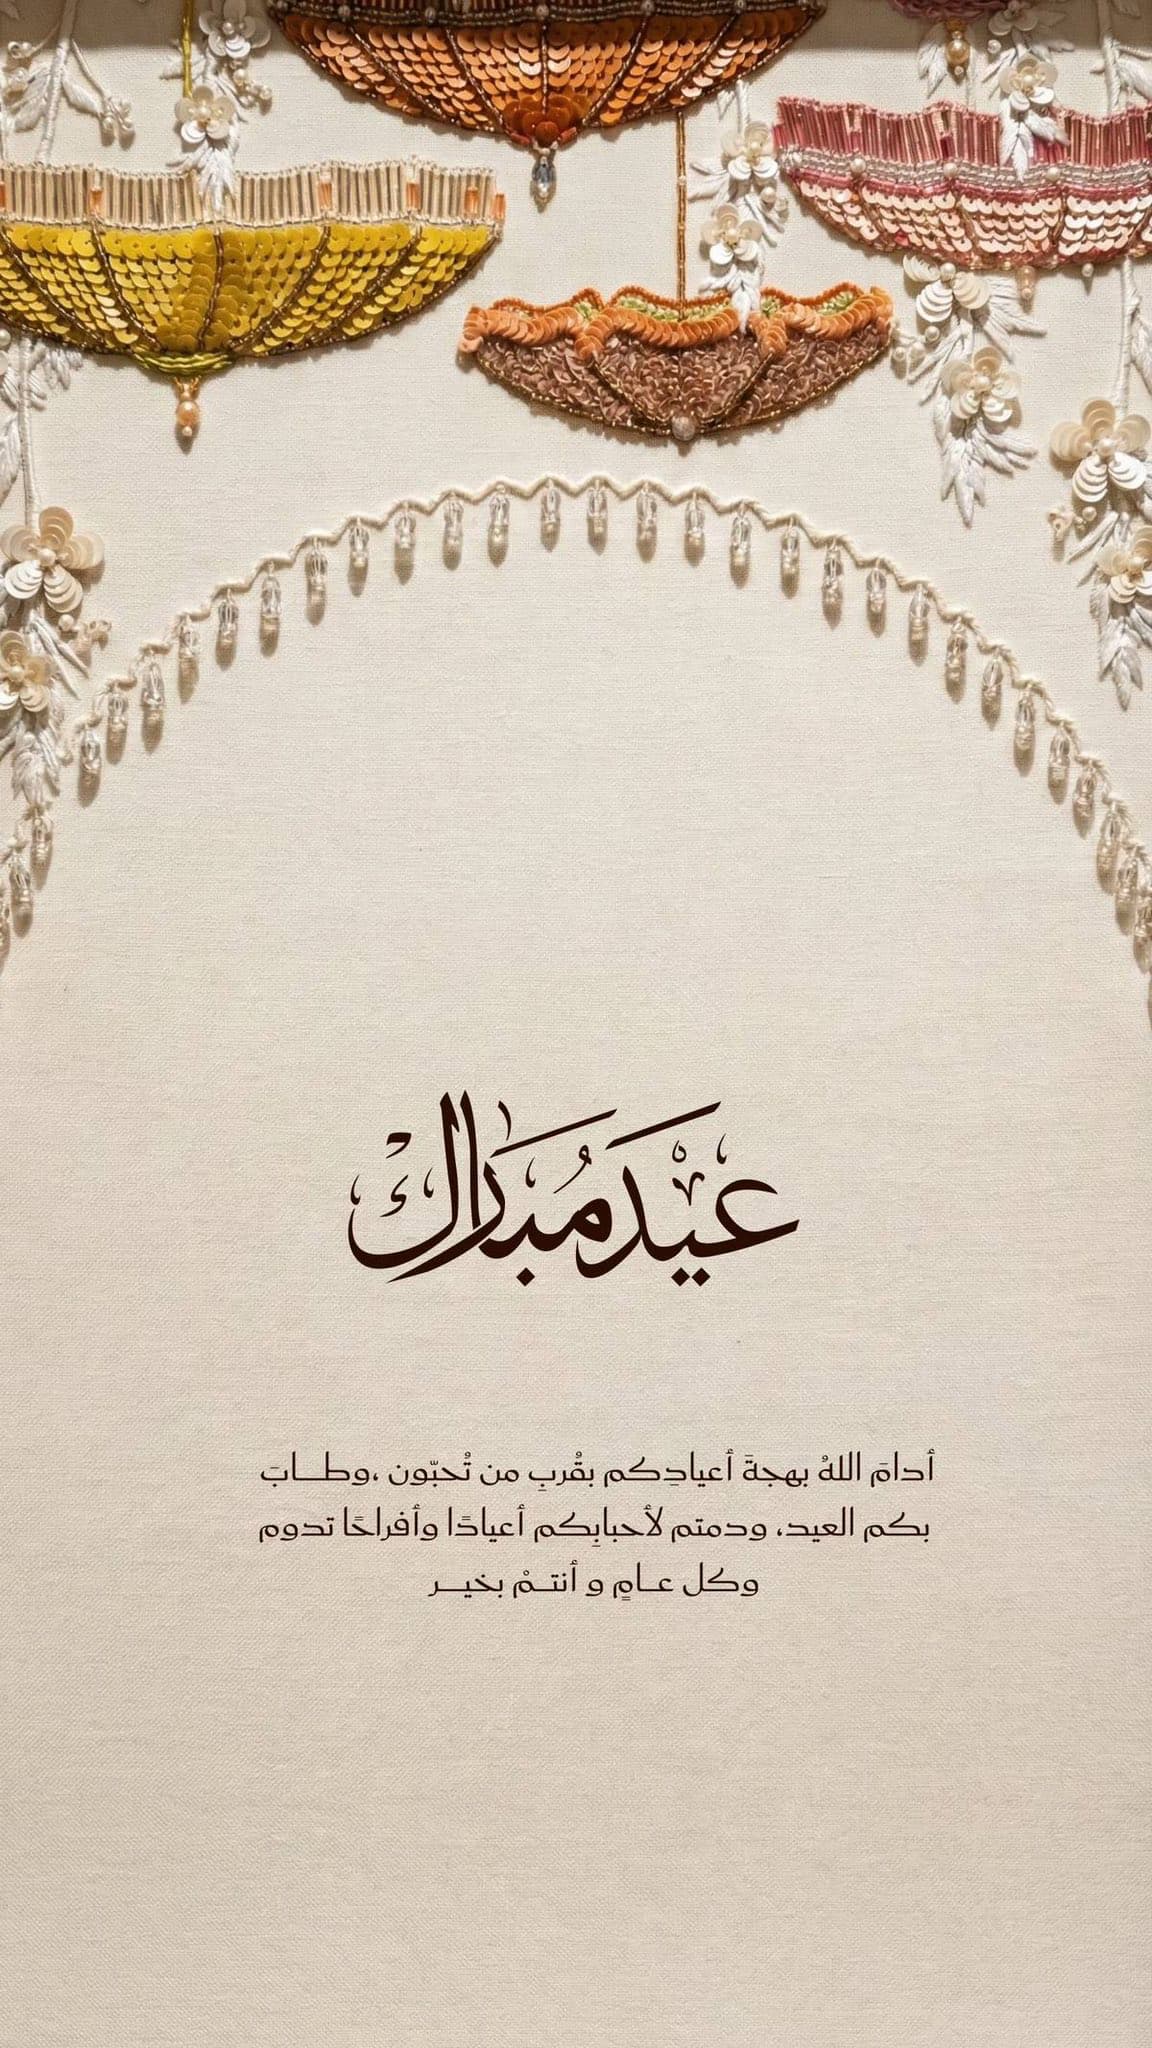 عيدَ مُبَارك
أدامَ اللهُ بهجةَ أعيادِكم بقُربِ من تُحبّون ،وطـــابَ
بكم العيد، ودمتم لأحبابِكم أعيادًا وأفراحًا تدوم
وكل عــامٍ و أنتــمْ بخيــر